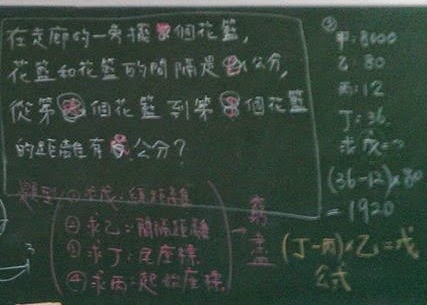 在走廊的一旁擺甲個花籃,
花籃和花籃的間隔是乙公分,
從第丙個花籃到第丁個花籃
的距離有戊公分?
題型
①求戊:總距離
②求乙:間隔距離
③求丁:尾座標
④求丙:起始座標
甲:8000
乙:80
丙:12
丁:36
求戊=?
(36-12)×80
=1920
(丁-丙)×乙=戊
公式